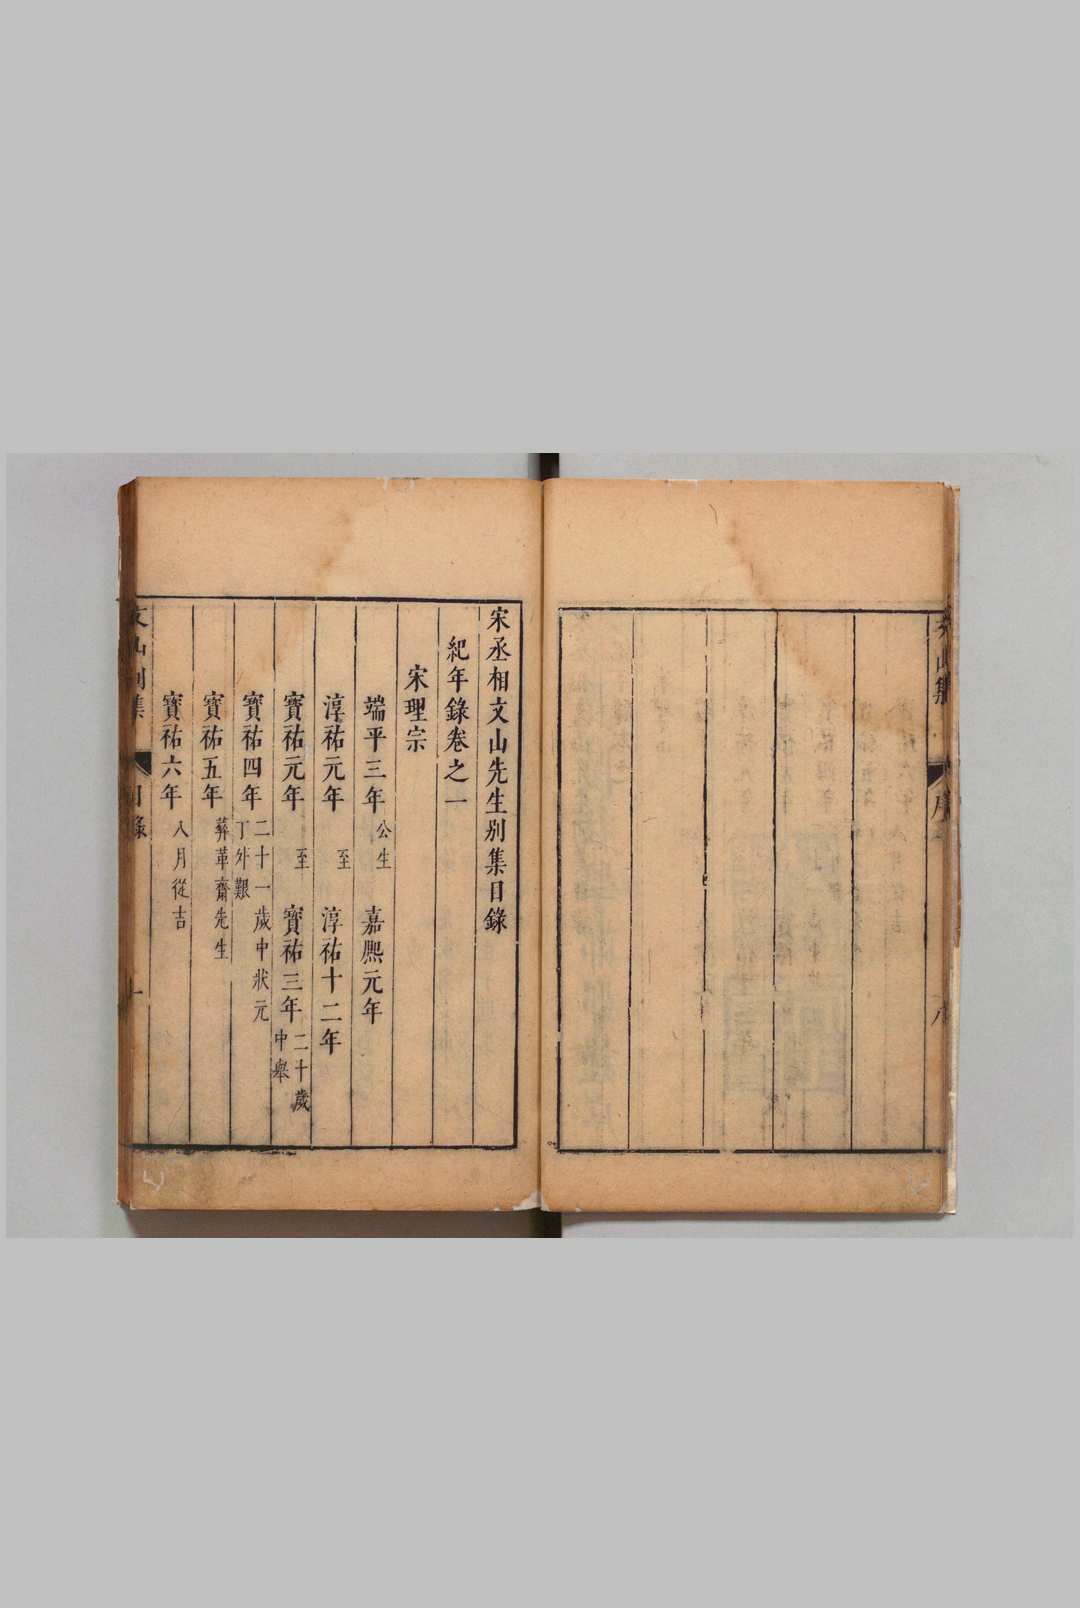 宋丞相文山先生别集目錄
紀年錄卷之一
宋理宗
端平三年公生 嘉熙元年
淳祐元年 至 淳祐十二年
寶祐元年 至 寶祐三年二十歲中舉
寶祐四年二十一歲中狀元丁外艱
寶祐五年葬革齋先生
寶祐六年八月從吉
文山别集 目錄 一